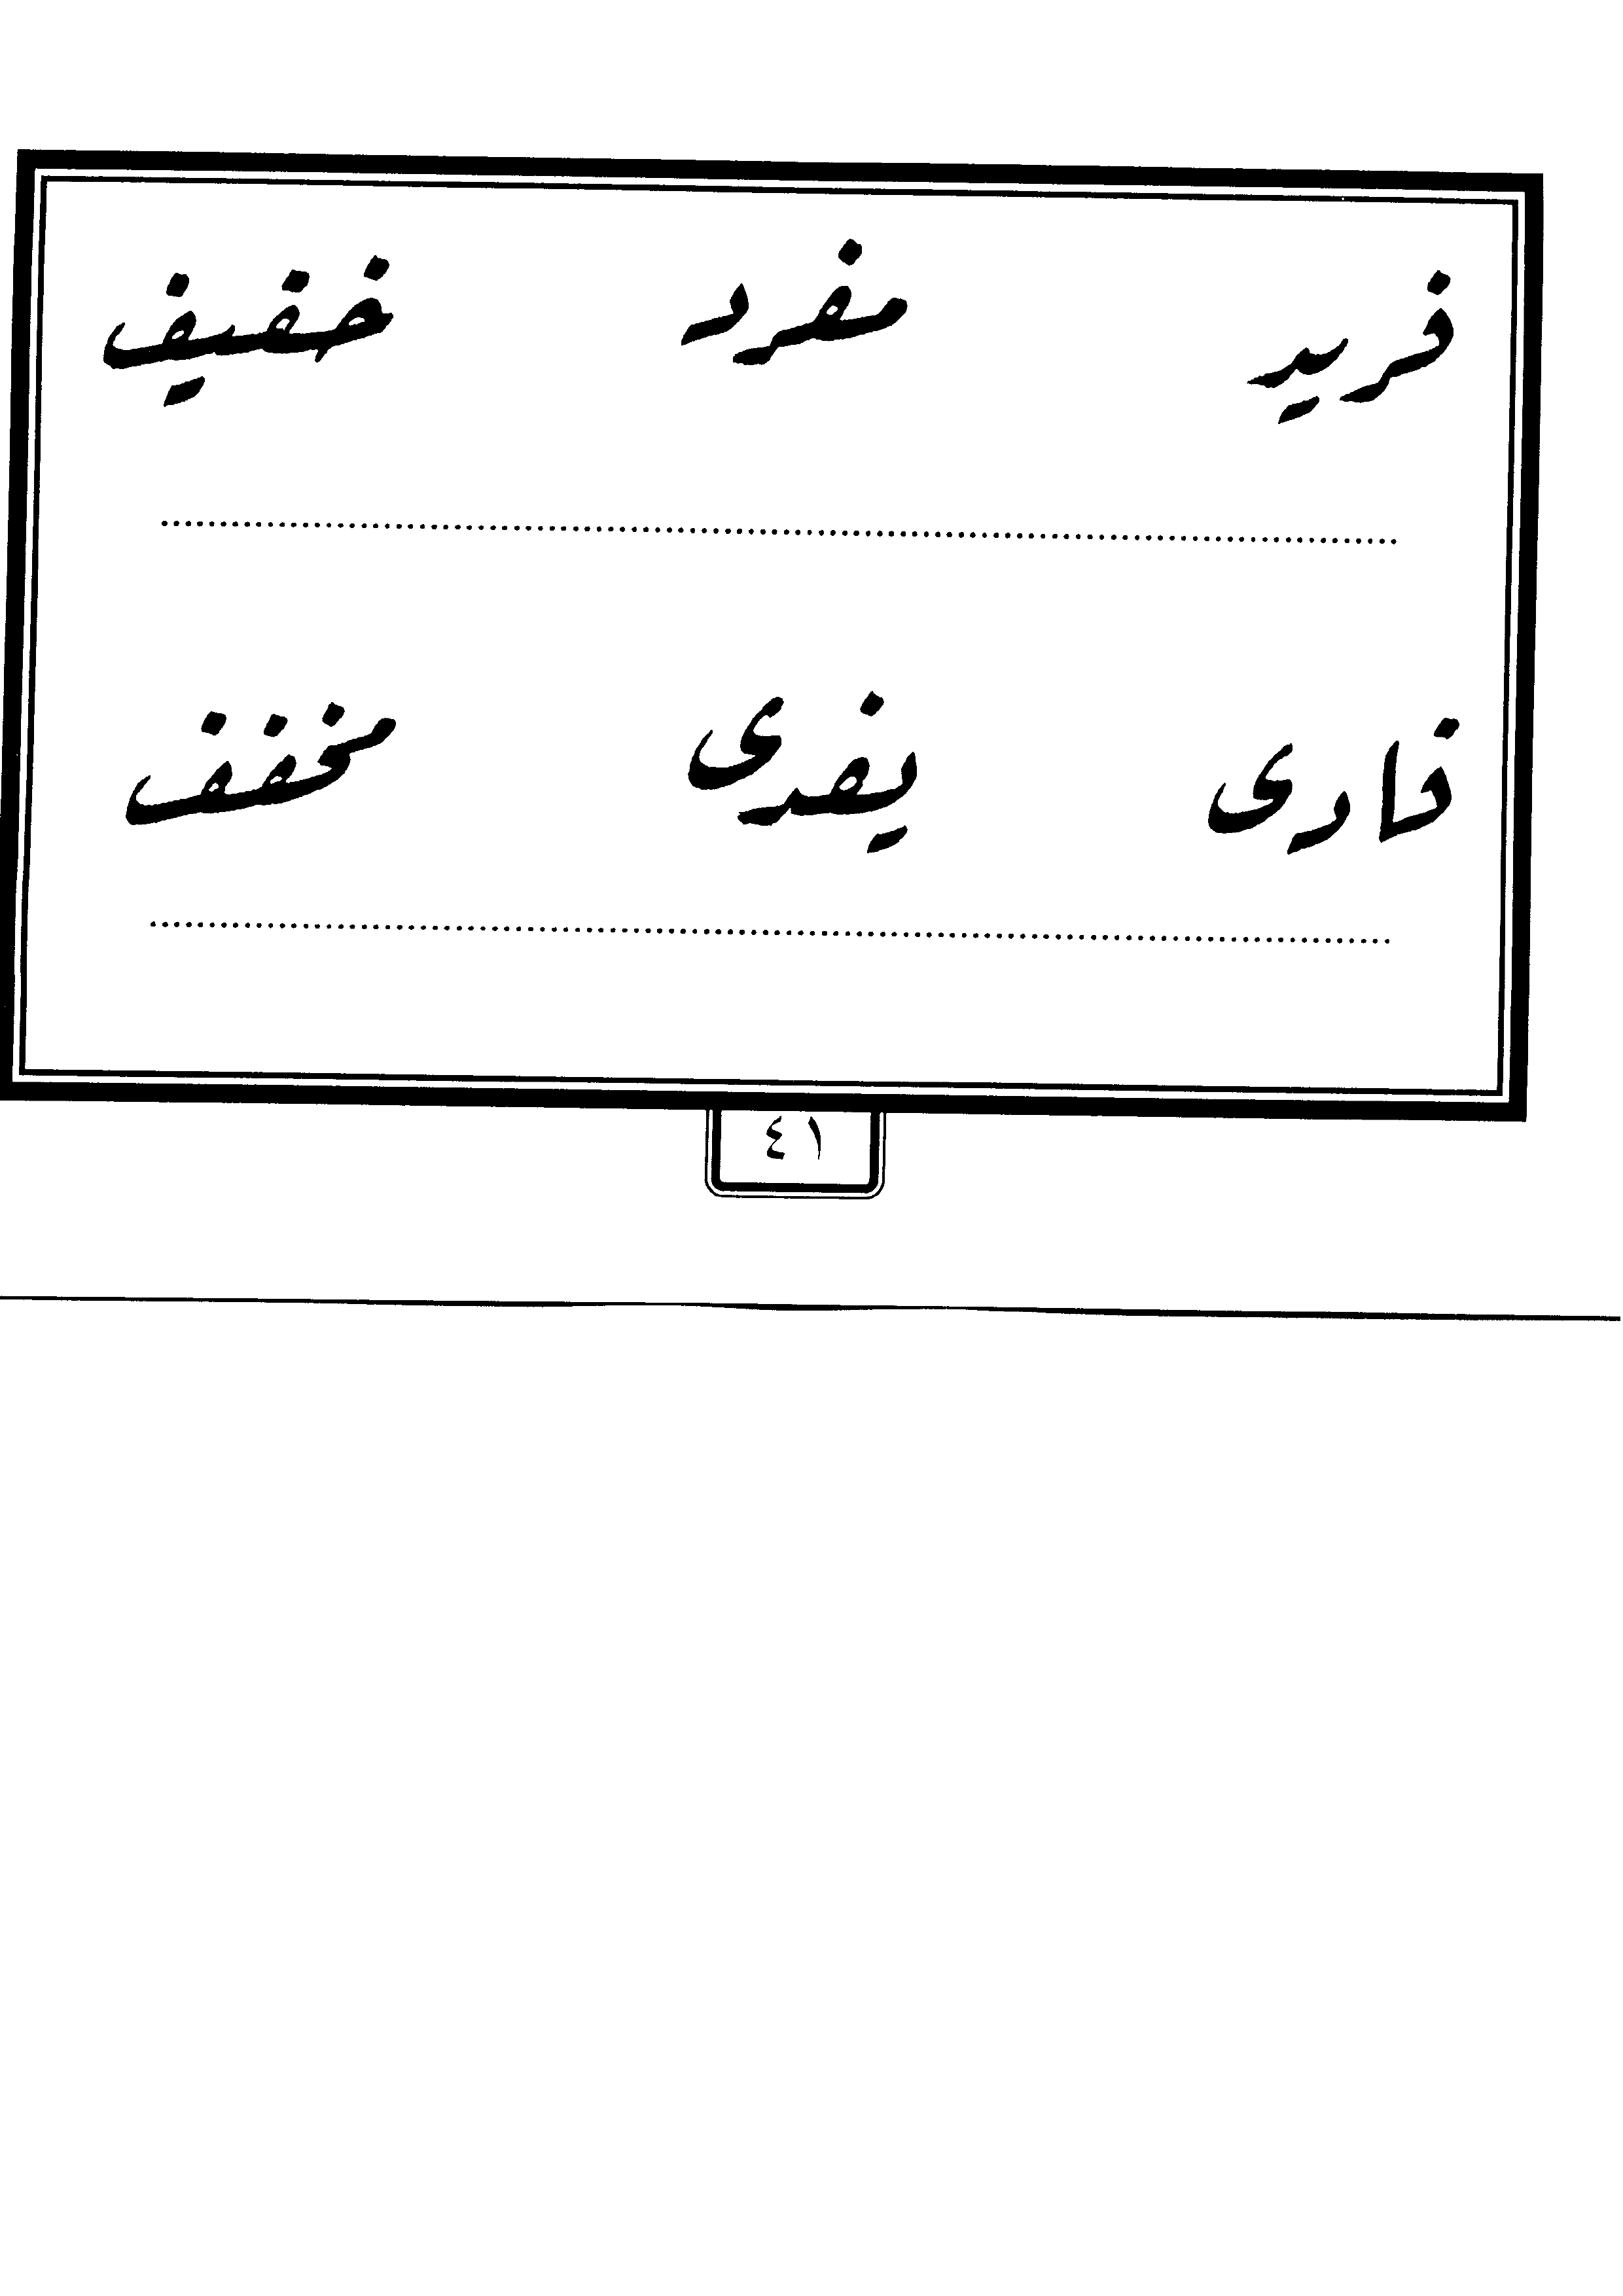 فريد مفرد خفيف
فادى يفدى مخفف
٤١